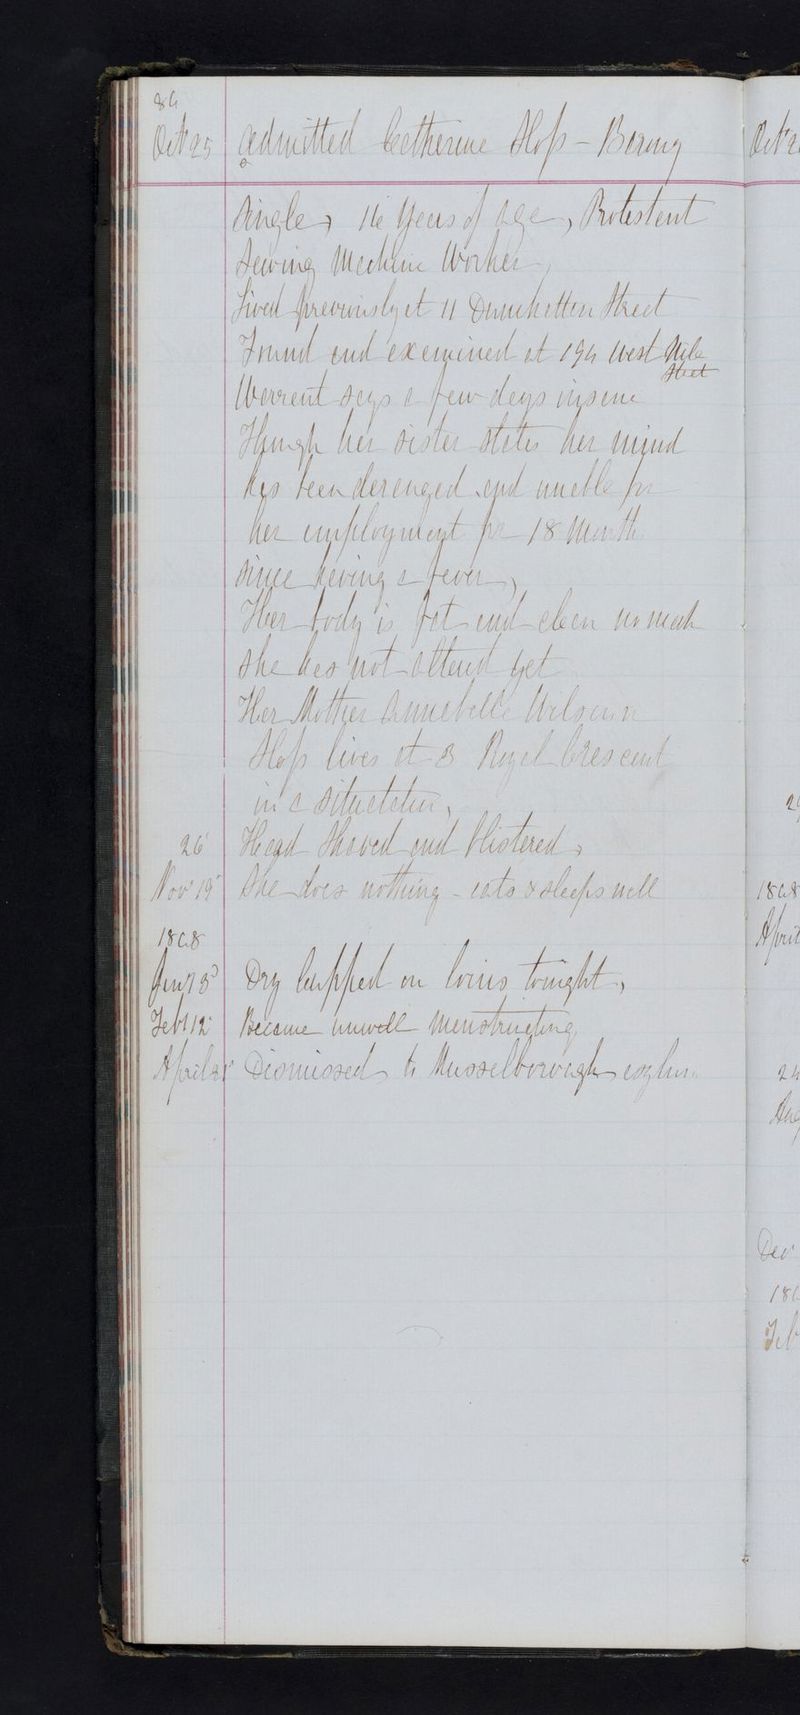 86
Oct 25 Admitted Catherine Hoss - Barony
Single, 16 Years of Age, Protestant
Sewing Machine Worker,
Lived previously at 11 Street
Found and examined at 194 West Nile
Street
Warrent says a few days insane
Though her sister states her mind
has been deranged and unable for
her employment for 18 Month
since having a fever,
Her body is fat and clean no mark
she has not attend yet
Her Mother Annabella
Hoss lives at 3 Royal Crescent
in a situatetin,
26 Head Shaved and blistered,
Nov 19 She does nothing - eats & sleeps well
1868
Jany 3d Dry Cupped on loins tonight,
Feby 12 Became unwell Menstruating
April Dismissed to Musselborough asylum
Oct 2
2
1868
April
24
Aug
Dec
186
Feb